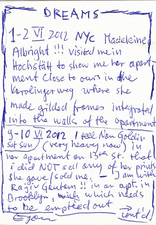 DREAMS
1-2 VI 2012 NYC Madeleine
Albright !!! visited me in
Hochstätt to show me her apart
ment close to ours in the
Karolingerweg where she
made gilded frames integrated
into the walls of the apartment
9-10 VI 2012 I tell Nan Goldin
Sat Sun (very heavy now) in
her apartment on 13th St. that
I did NOT sell any of her prints
she gave / sold me. — I am with
Rajiv !! in an apt. in
Brooklyn, which needs
to be emptied out
cont'd